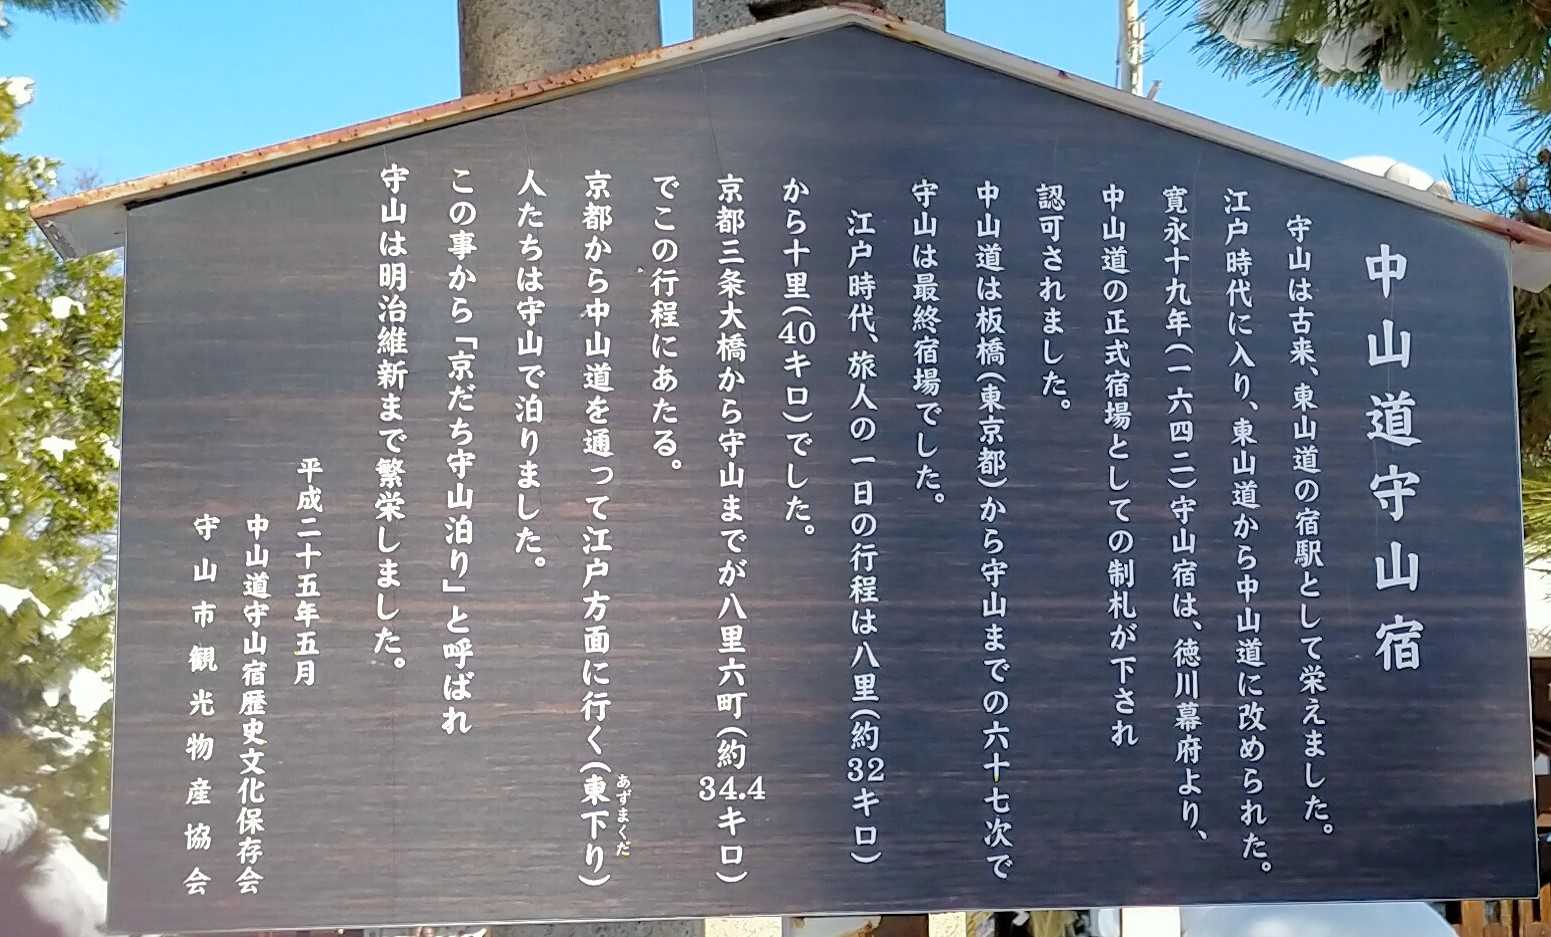 中山道守山宿
守山は古来、東山道の宿駅として栄えました。
江戸時代に入り、東山道から中山道に改められた。
寛永十九年(一六四二)守山宿は、徳川幕府より、
中山道の正式宿場としての制札が下され
認可されました。
中山道は板橋(東京都)から守山までの六十七次で
守山は最終宿場でした。
江戸時代、旅人の一日の行程は八里(約32キロ)
から十里(40キロ)でした。
京都三条大橋から守山までが八里六町(約34.4キロ)
でこの行程にあたる。
京都から中山道を通って江戸方面に行く(東下り)
あずまくだ
人たちは守山で泊りました。
この事から「京だち守山泊り」と呼ばれ
守山は明治維新まで繁栄しました。
平成二十五年五月
中山道守山宿歴史文化保存会
守山市観光物産協会